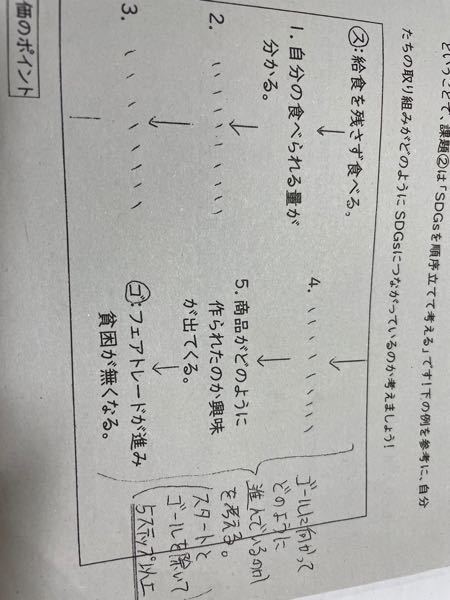 ということで、課題②は「SDGsを順序立てて考える」です！下の例を参考に、自分
たちの取り組みがどのようにSDGsにつながっているのか考えましょう！
ス:給食を残さず食べる。
↓
1. 自分の食べられる量が
分かる。
↓
2. 、、、、、、、
↓
3. 、、、、、、、
4. 、、、、、、、
↓
5. 商品がどのように
作られたのか興味
が出てくる。
↓
ゴ:フェアトレードが進み
貧困が無くなる。
ゴールに向かって
どのように
進んでいるのか
を考える。
(スタートと
ゴールを除いて)
5ステップ以上
価のポイント